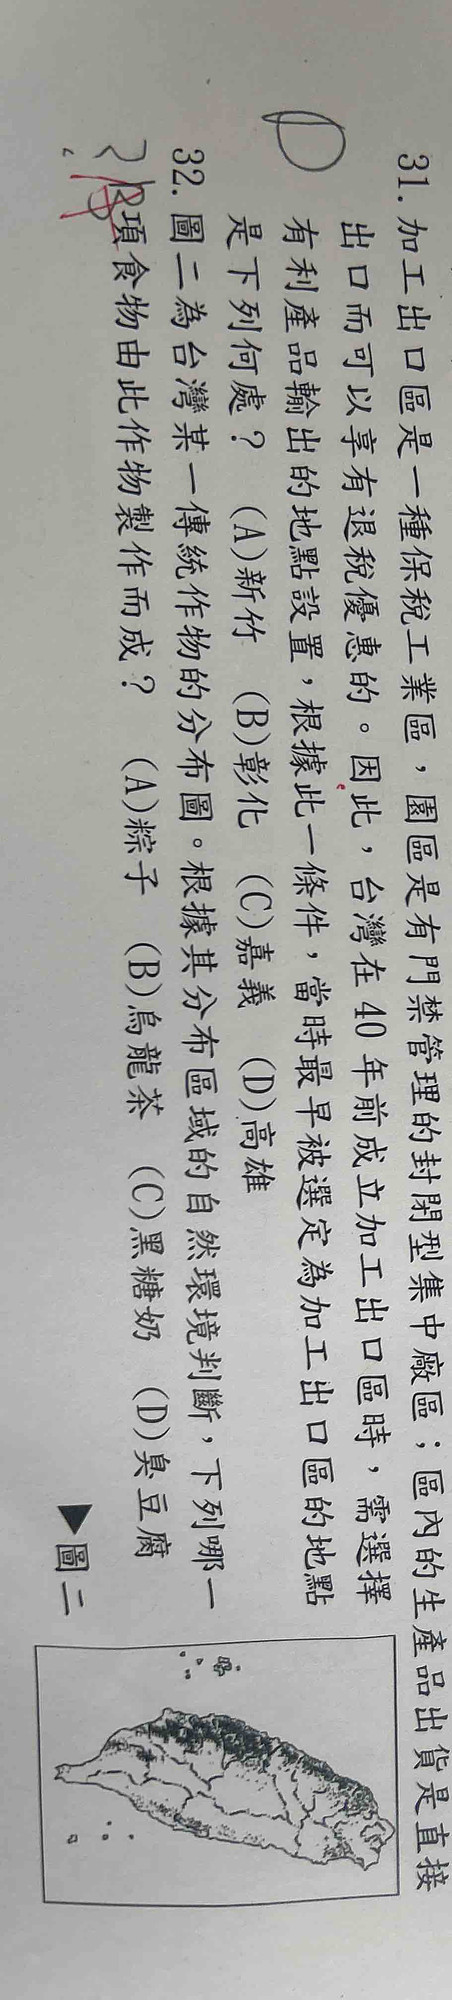 31. 加工出口區是一種保稅工業區，園區是有門禁管理的封閉型集中廠區；區內的生產品出貨是直接
出口而可以享有退稅優惠的。因此，台灣在 40 年前成立加工出口區時，需選擇
有利產品輸出的地點設置，根據此一條件，當時最早被選定為加工出口區的地點
是下列何處？ (A)新竹 (B)彰化 (C)嘉義 (D)高雄
D
32. 圖二為台灣某一傳統作物的分布圖。根據其分布區域的自然環境判斷，下列哪一
項食物由此作物製作而成？ (A)粽子 (B)烏龍茶 (C)黑糖奶 (D)臭豆腐
▲圖二